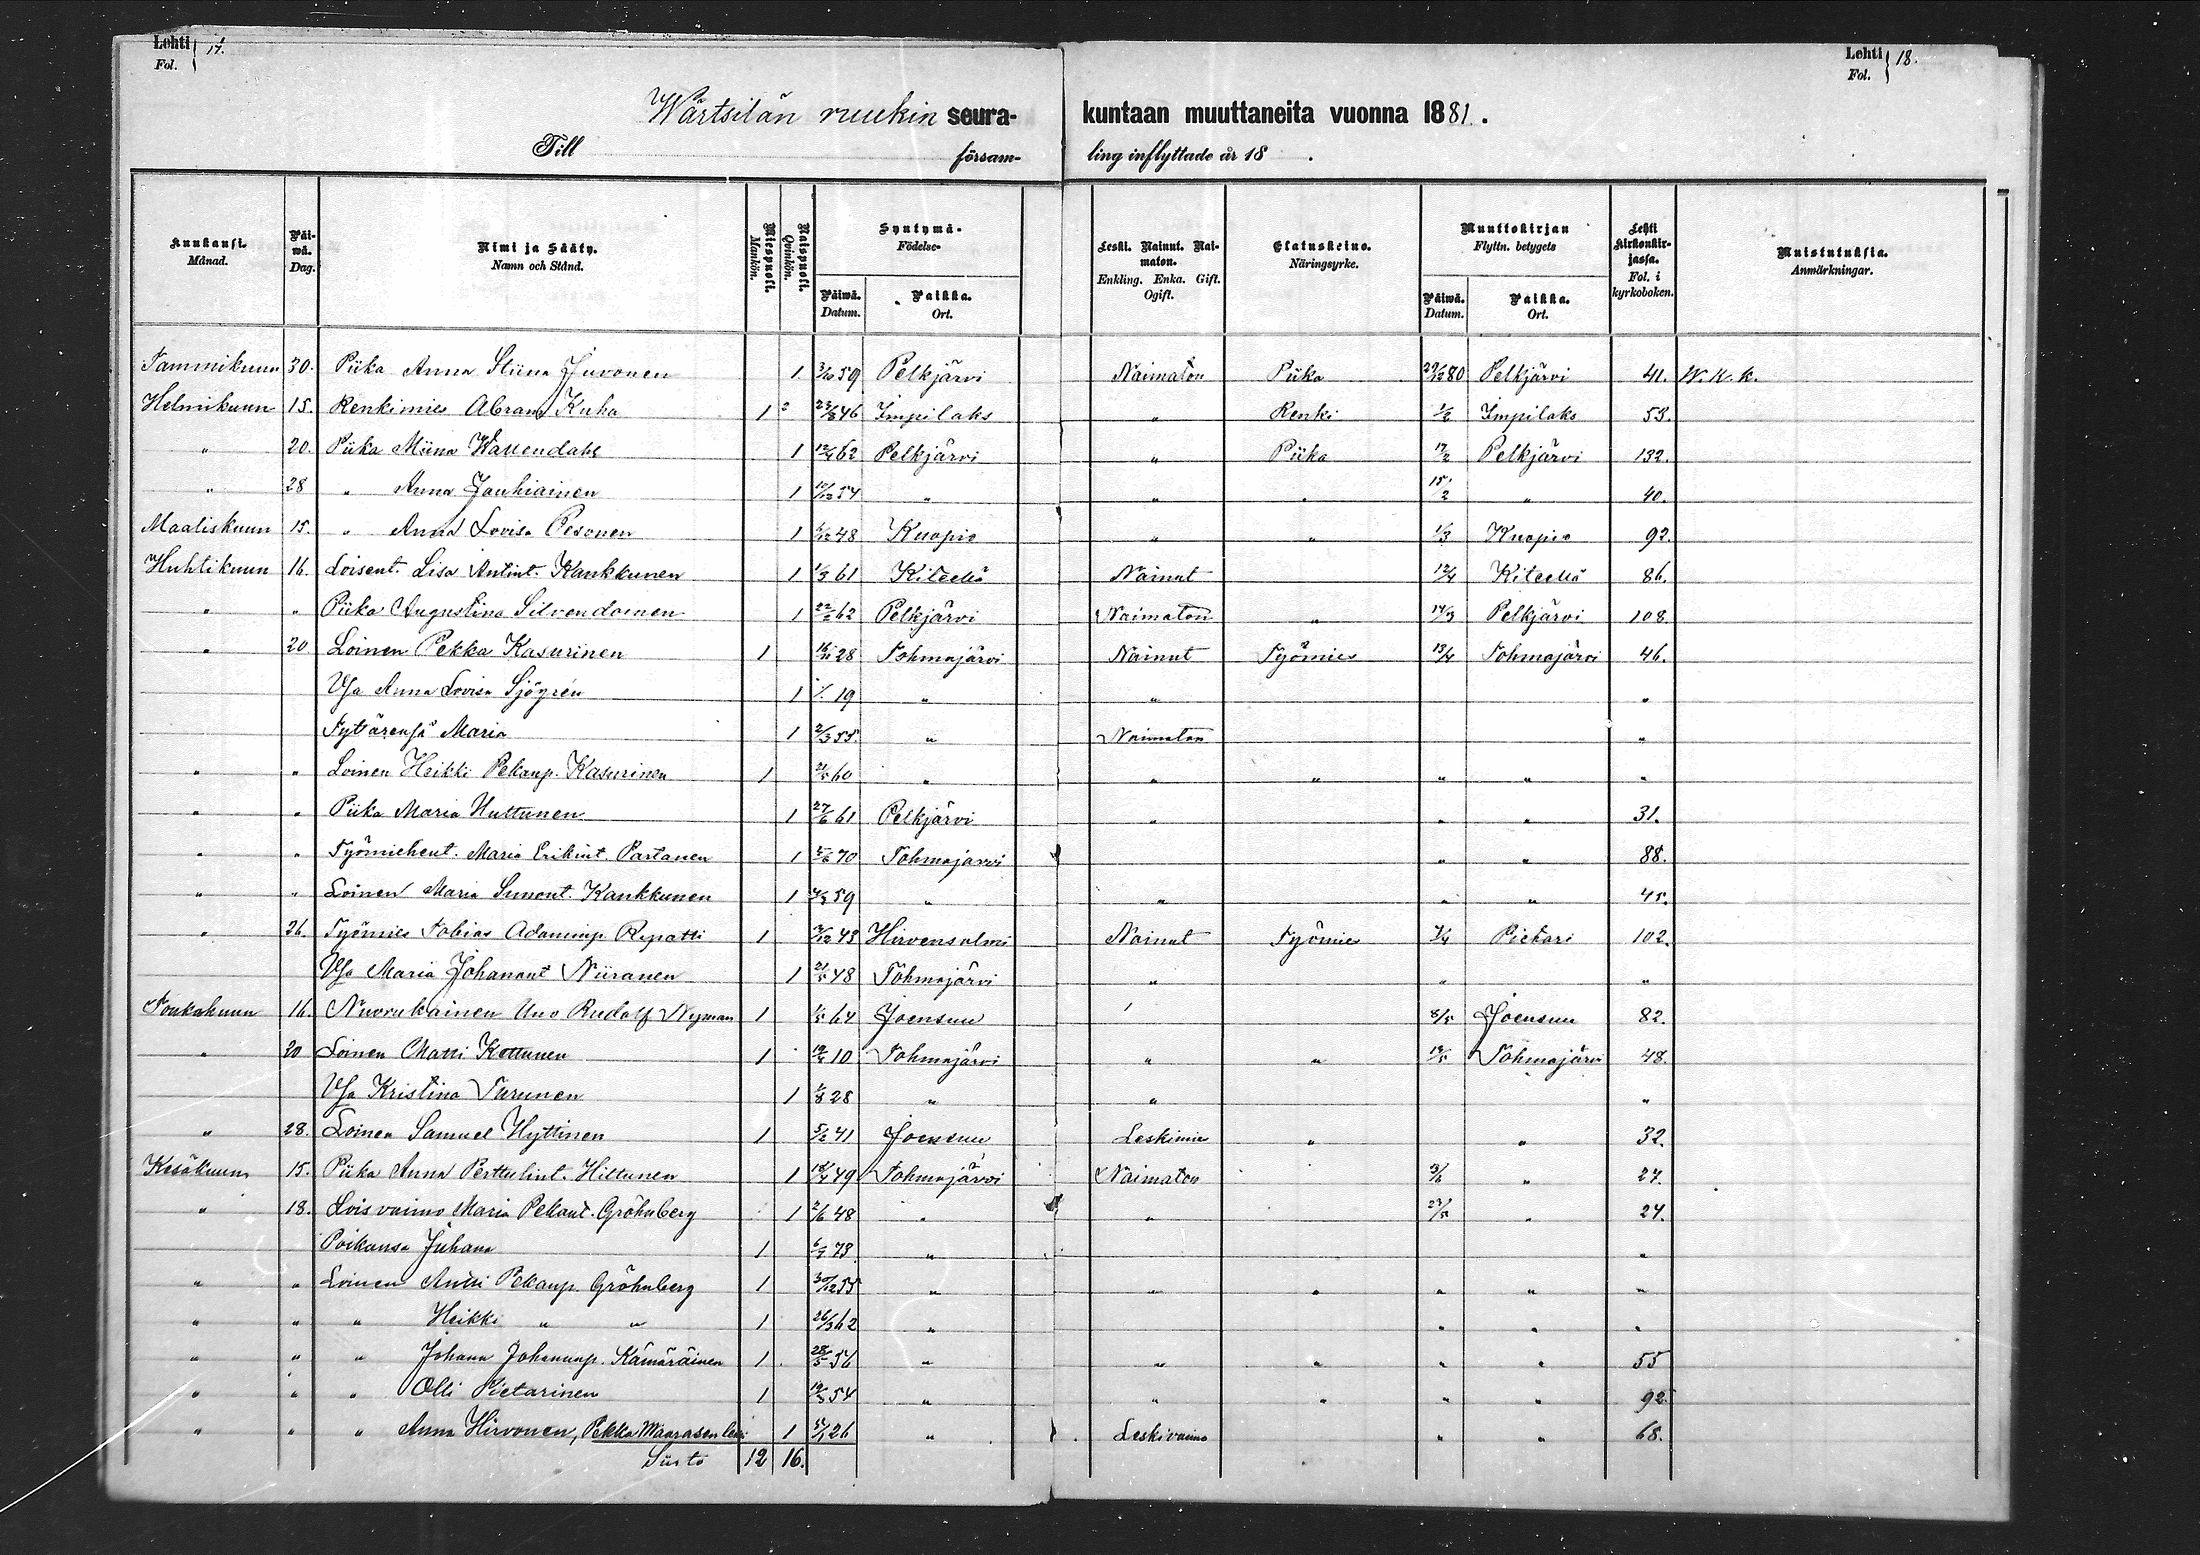 Lehti 17.
Fol.
Lehti 18.
Fol.
Wärtsilän ruukin seura- kuntaan muuttaneita vuonna 1881.
Till församling inflyttade år 18 .
Kuukausi. Månad.
Päiwä. Dag.
Nimi ja Sääty. Namn och Stånd.
Miespuoli. Mankön.
Naispuoli. Qvinkön.
Syntymä- Födelse-
Päiwä. Datum.
Paikka. Ort.
Leski. Nainut. Naimaton. Enkling. Enka. Gift. Ogift.
Elatuskeino. Näringsyrke.
Muuttokirjan Flyttn. betygets
Päiwä. Datum.
Paikka. Ort.
Lehti kirkonkirjassa. Fol. i kyrkoboken.
Muistutuksia. Anmärkningar.
Tammikuun 30. Piika Anna Stiina Juvonen 1 3/10 59 Pelkjärvi Naimaton Piika 29/12 80 Pelkjärvi 41. W. K. k.
Helmikuun 15. Renkimies Abram Kuha 1 2 23/8 46 Impilaks " Renki 1/2 Impilaks 53.
" 20. Piika Miina Wallendahl 1 12/4 62 Pelkjärvi " Piika 17/2 Pelkjärvi 132.
" 28 " Anna Jauhiainen 1 12/12 54 " " " 15/2 " 40.
Maaliskuun 15. " Anna Lovisa Pesonen 1 6/12 48 Kuopio " " 1/3 Kuopio 92.
Huhtikuun 16. Loisent. Lisa Antint. Kankkunen 1 1/3 61 Kiteellä Nainut 12/4 Kiteellä 86.
" " Piika Augustina Silvendoinen 1 22/2 62 Pelkjärvi Naimaton " 14/3 Pelkjärvi 108.
" 20 Loinen Pekka Kasurinen 1 16/11 28 Tohmajärvi Nainut Työmies 13/4 Tohmajärvi 46.
Vsa Anna Lovisa Sjögrén 1 19 " " "
Tytärensä Maria 1 2/3 55. " Naimaton "
" " Loinen Heikki Pekanp. Kasurinen 1 21/5 60 " " " " " "
" " Piika Maria Huttunen 1 27/6 61 Pelkjärvi " " " 31.
" " Työmiehent. Maria Erikint. Partanen 1 70 Tohmajärvi " " 88.
" " Loinen Maria Simont. Kankkunen 1 59 " " " " 45.
" 26. Työmies Tobias Adaminp. Repatti 1 43 Hirvensalmi Nainut Työmies 7/4 Pietari 102.
Vsa Maria Johanant Niiranen 1 21/5 48 Tohmajärvi " " "
Toukokuun 16. Nuorukainen Uno Rudolf Nyman 1 1/5 64 Joensuu 8/5 Joensuu 82.
" 20 Loinen Matti Kottunen 1 10 Tohmajärvi " " 19/5 Tohmajärvi 48.
Vsa Kristina Turunen 1 1/8 28 " " "
" 28. Loinen Samuel Hyttinen 1 5/2 41 Joensuu Leskimie " " 32.
Kesäkuun 15. Piika Anna Perttulint. Hiltunen 1 18/4 49 Tohmajärvi Naimaton 3/6 " 27.
" 18. Loisvaimo Maria Pekant. Gröhnberg 1 2/6 48 " " 23/5 " 24.
Poikansa Juhana 1 73 " "
" " Loinen Antti Pekanp. Gröhnberg 1 30/12 55 " " " " " "
" " " Heikki " " 1 26/3 62 " " " "
" " " Johan Johaninp. Kämäräinen 1 28/5 56 " " " " " 55
" " " Olli Pietarinen 1 19/3 54 " " " " " 92
" " " Anna Hirvonen, Pekka Maarasen leski 1 26 " Leskivaimo " " 68.
Siirto 12 16.